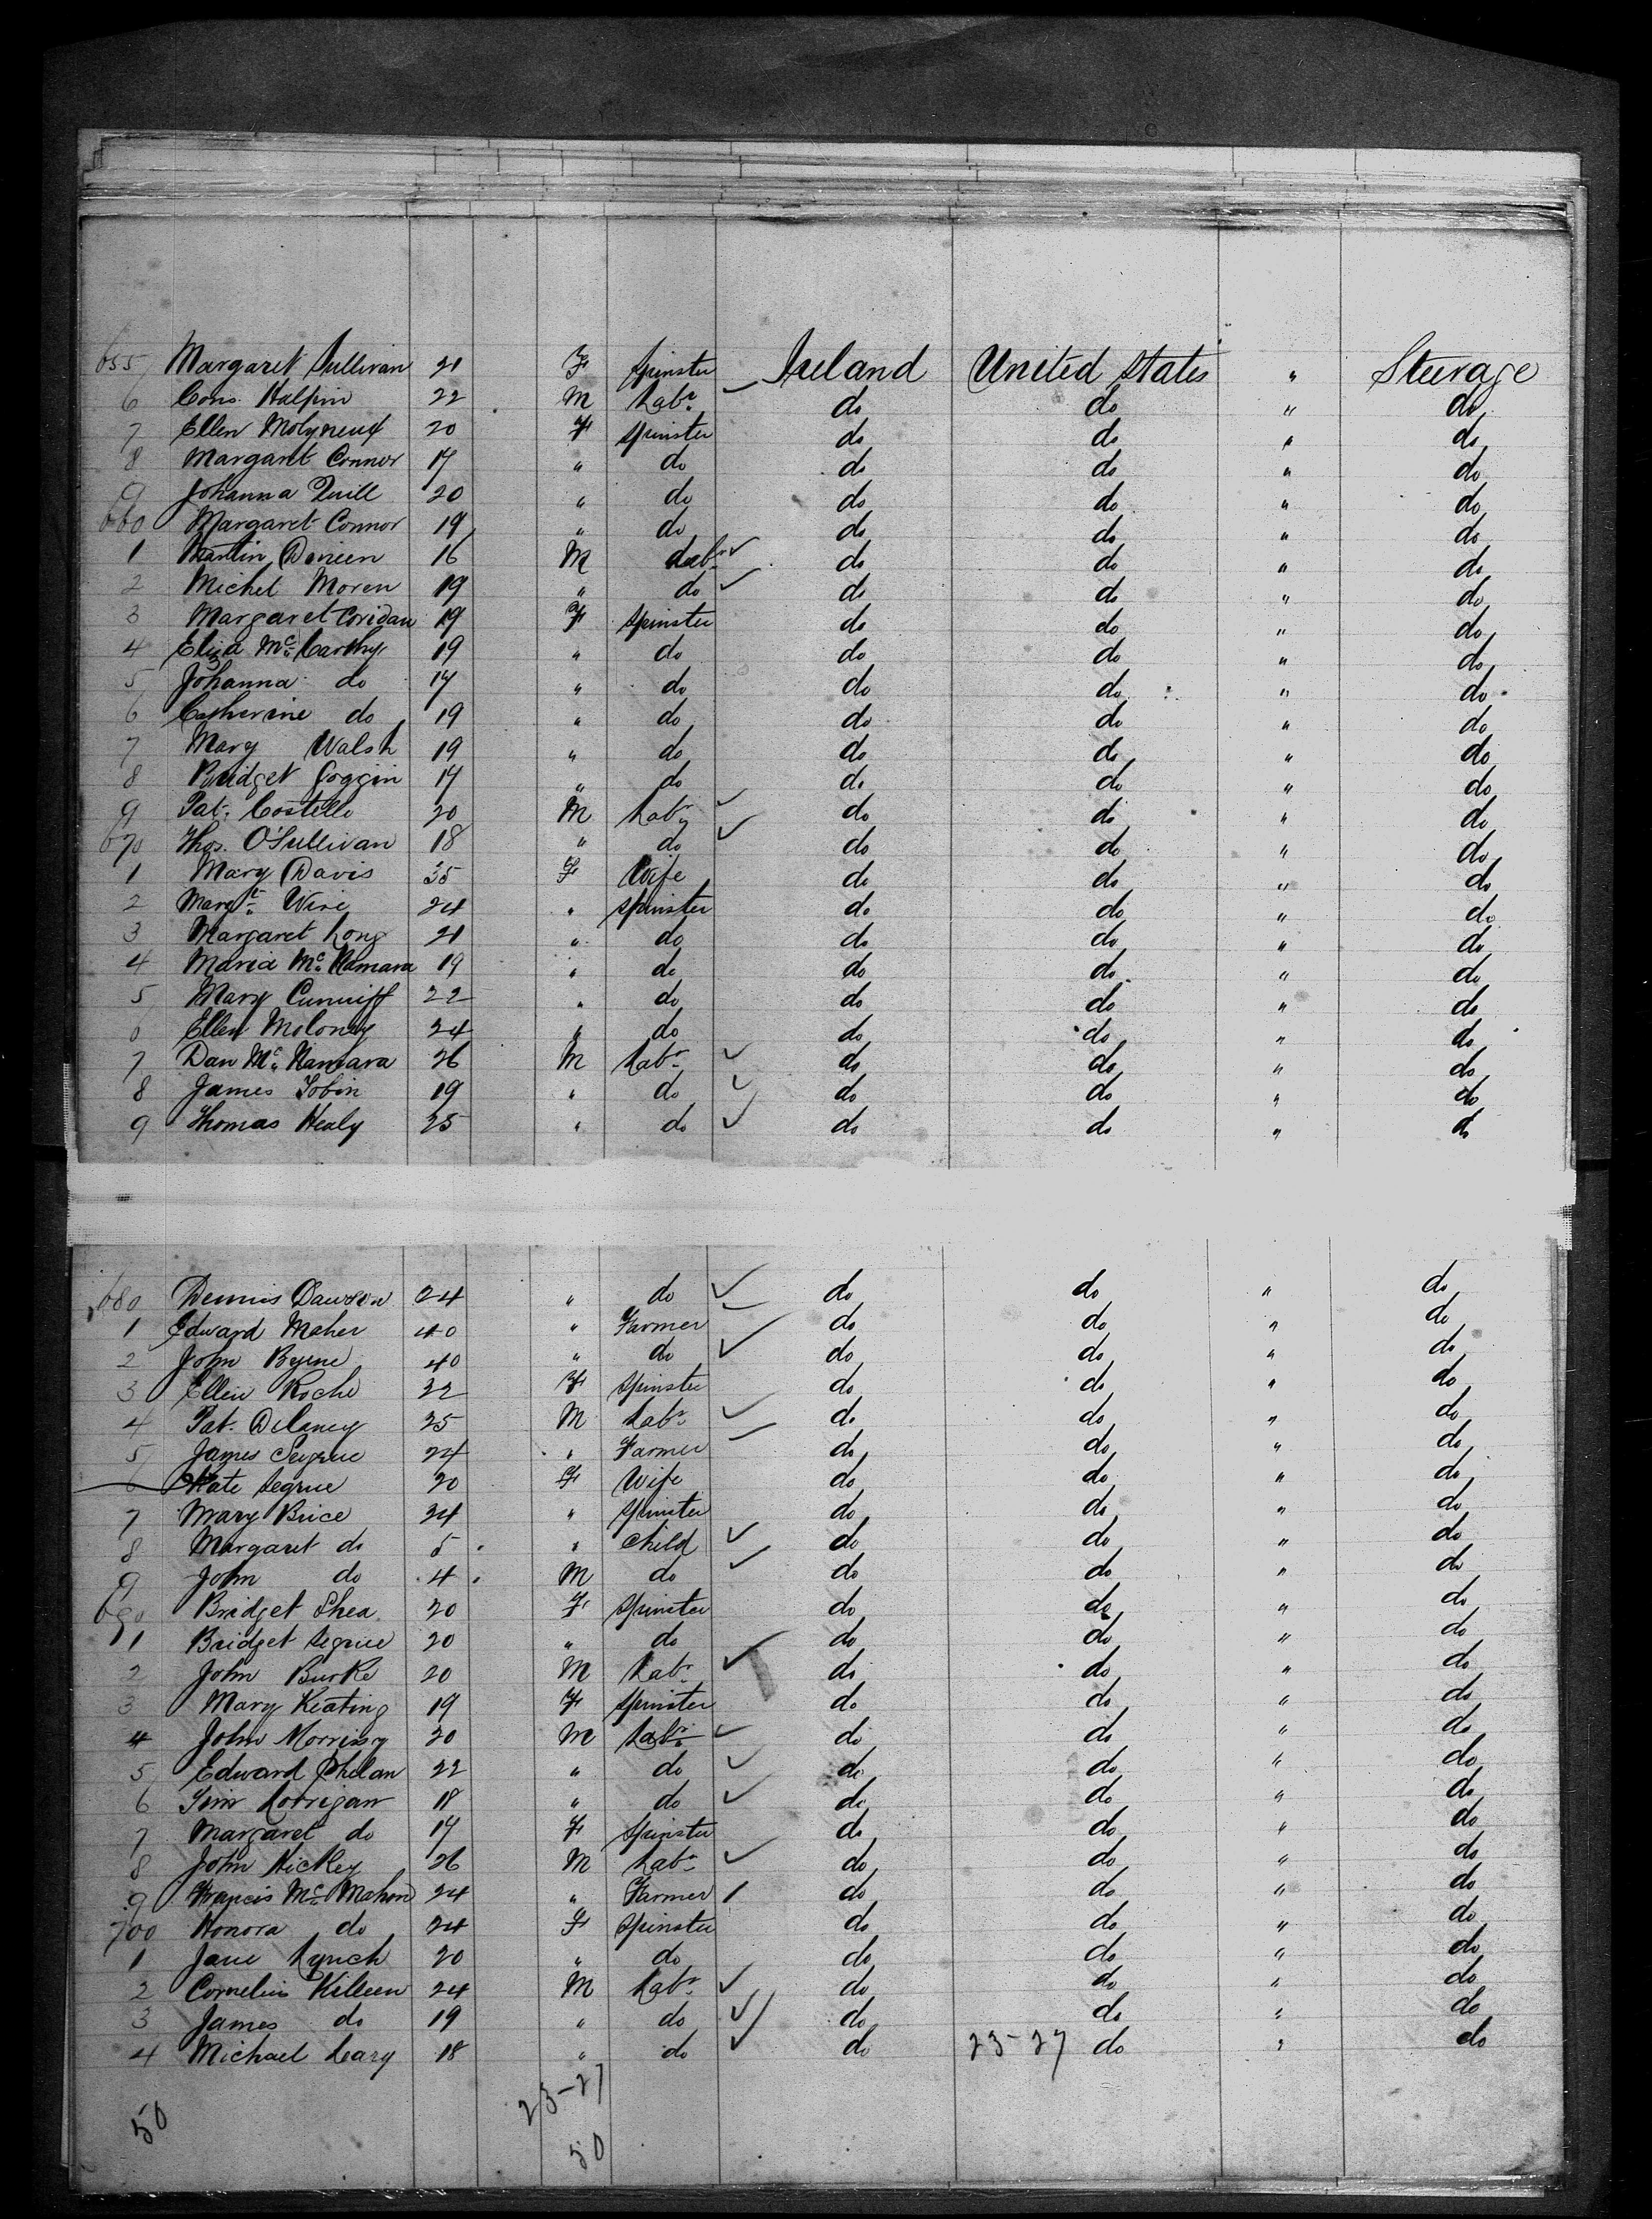 655 Margaret Sullivan 21 F Spinster Ireland United States " Steerage
6 Cons. Halpin 22 M Labr. do do " do
7 Ellen Molyneux 20 F Spinster do do " do
8 Margaret Connor 17 " do do do " do
9 Johanna Quill 20 " do do do " do
660 Margaret Connor 19 " do do do " do
1 Martin Dineen 16 M Labr. do do " do
2 Michel Moren 19 " do do do " do
3 Margaret Coridan 19 F Spinster do do " do
4 Eliza Mc. Carthy 19 " do do do " do
5 Johanna do 17 " do do do " do
6 Catherine do 19 " do do do " do
7 Mary Walsh 19 " do do do " do
8 Bridget Goggin 17 " do do do " do
9 Pat. Costello 20 M Labr. do do " do
670 Thos. O'Sullivan 18 " do do do " do
1 Mary Davis 35 F Wife do do " do
2 Margt. 24 " Spinster do do " do
3 Margaret Long 21 " do do do " do
4 Maria Mc. Namara 19 " do do do " do
5 Mary Cunniff 22 " do do do " do
6 Ellen Moloney 24 " do do do " do
7 Dan Mc. Namara 26 M Labr. do do " do
8 James Tobin 19 " do do do " do
9 Thomas Healy 25 " do do do " do
680 Dennis Dawson 24 " do do do " do
1 Edward Maher 40 " Farmer do do " do
2 John Byrne 40 " do do do " do
3 Ellen Roche 22 F Spinster do do " do
4 Pat. Delaney 25 M Labr. do do " do
5 James Segrue 24 " Farmer do do " do
6 Kate Segrue 20 F Wife do do " do
7 Mary Brice 24 " Spinster do do " do
8 Margaret do 5 " Child do do " do
9 John do 4 M do do do " do
690 Bridget Shea 20 F Spinster do do " do
1 Bridget Segrue 20 " do do do " do
2 John Burke 20 M Labr. do do " do
3 Mary Keating 19 F Spinster do do " do
4 John Morrissy 20 M Labr. do do " do
5 Edward Phelan 22 " do do do " do
6 Tim Lorrigan 18 " do do do " do
7 Margaret do 17 F Spinster do do " do
8 John Hickey 26 M Labr. do do " do
9 Francis Mc. Mahon 24 " Farmer do do " do
700 Honora do 24 F Spinster do do " do
1 Jane Lynch 20 " do do do " do
2 Cornelius Killeen 24 M Labr. do do " do
3 James do 19 " do do do " do
4 Michael Leary 18 " do do 23-27 do " do
23-27
50
50